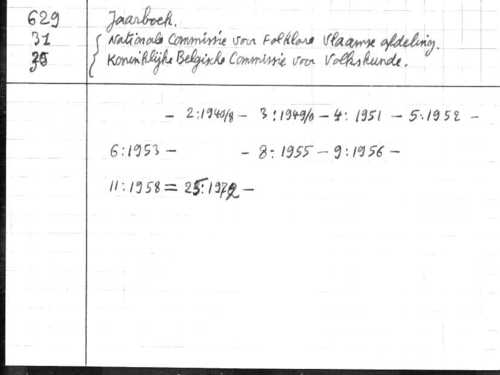 629 Jaarboek.
31 Nationale Commissie voor Folklore Vlaamse afdeling.
Koninklijke Belgische Commissie voor Volkskunde.
- 2:1940/8 - 3:1949/0 - 4:1951 - 5:1952 -
6:1953 - - 8:1955 - 9:1956 -
11:1958 = 25:1972 -